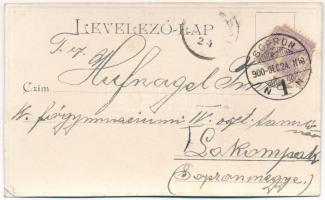 LEVELEZŐ-LAP
T. cz.
Hufnagel
SOPRON
900 DEC. 24.
1
24
Czim
főgymnasiumi IV. oszt. tanuló
Lakompak
(Sopronmegye.)